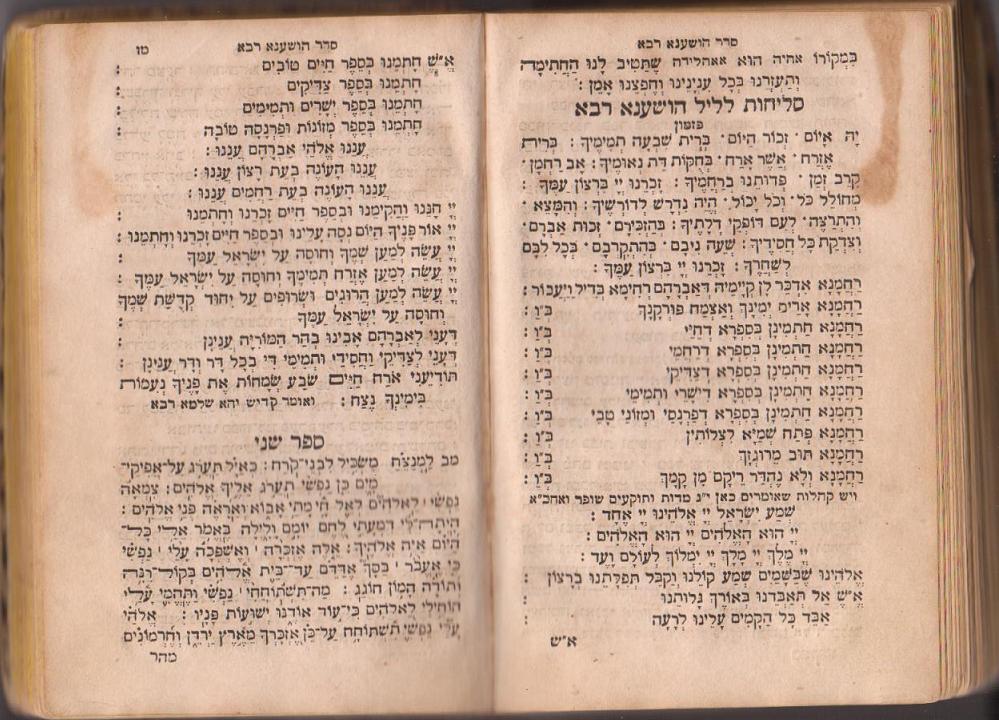 סדר הושענא רבא
במקורו אהיה הוא אאהלידה שֶׁתֵּטִיב לָנוּ הַחֲתִימָה
וְתַעְזְרֵנוּ בְּכָל עִנְיָנֵינוּ וְחֶפְצֵנוּ אָמֵן :
סליחות לליל הושענא רבא
פזמון
יָהּ אָיוֹם · זְכוֹר הַיּוֹם · בְּרִית שִׁבְעָה תְמִימֶיךָ : בְּרִית
אֶזְרַח · אֲשֶׁר אָרַח · בְּחֻקּוֹת דַּת נְאוּמֶיךָ : אַב רַחֲמָן ·
קָרֵב זְמַן · פְּדוּתֵנוּ בְּרַחֲמֶיךָ : זָכְרֵנוּ יְיָ בִּרְצוֹן עַמֶּךָ :
מְחוֹלֵל כֹּל · וְכֹל יָכוֹל · הֱיֵה נִדְרָשׁ לְדוֹרְשֶׁיךָ : וְהִמָּצֵא ·
וְהִתְרַצֵּה · לְעַם דּוֹפְקֵי דְלָתֶיךָ : בְּהַזְכִּירָם · זְכוּת אַבְרָם ·
וְצִדְקַת כָּל חֲסִידֶיךָ : שְׁעֵה נִיבָם · בְּהִתְקָרְבָם · בְּכָל לִבָּם
לְשַׁחֲרֶךָ : זָכְרֵנוּ יְיָ בִּרְצוֹן עַמֶּךָ :
רַחֲמָנָא אִדְכַּר לָן קְיָמֵיהּ דְּאַבְרָהָם רְחִימָא בְּדִיל וַיַּעֲבוֹר :
רַחֲמָנָא אָרִים יְמִינָךְ וְאַצְמַח פּוּרְקָנָךְ ב״ו :
רַחֲמָנָא חַתְמִינָן בְּסִפְרָא דְחַיֵּי ב״ו :
רַחֲמָנָא חַתְמִינָן בְּסִפְרָא דְרַחֲמֵי ב״ו :
רַחֲמָנָא חַתְמִינָן בְּסִפְרָא דְצַדִּיקֵי ב״ו :
רַחֲמָנָא חַתְמִינָן בְּסִפְרָא דִישָׁרֵי וּתְמִימֵי ב״ו :
רַחֲמָנָא חַתְמִינָן בְּסִפְרָא דְפַרְנָסֵי וּמְזוֹנֵי טָבֵי ב״ו :
רַחֲמָנָא פְּתַח שְׁמַיָּא לִצְלוֹתִין ב״ו :
רַחֲמָנָא תּוּב מֵרוּגְזָךְ ב״ו :
רַחֲמָנָא וְלָא נֶהְדַּר רֵיקָם מִן קַמָּךְ ב״ו :
ויש קהלות שאומרים כאן י״ג מדות ותוקעים שופר ואחכ״א
שְׁמַע יִשְׂרָאֵל יְיָ אֱלֹהֵינוּ יְיָ אֶחָד :
יְיָ הוּא הָאֱלֹהִים יְיָ הוּא הָאֱלֹהִים :
יְיָ מֶלֶךְ יְיָ מָלָךְ יְיָ יִמְלוֹךְ לְעוֹלָם וָעֶד :
אֱלֹהֵינוּ שֶׁבַּשָּׁמַיִם שְׁמַע קוֹלֵנוּ וְקַבֵּל תְּפִלָּתֵנוּ בְּרָצוֹן :
א״ש אַל תְּאַבְּדֵנוּ בְּאוֹרֶךְ גָּלוּתֵנוּ :
אַבֵּד כָּל הַקָּמִים עָלֵינוּ לְרָעָה :
א״ש
סדר הושענא רבא טז
א״ש חָתְמֵנוּ בְּסֵפֶר חַיִּים טוֹבִים :
חָתְמֵנוּ בְּסֵפֶר צַדִּיקִים :
חָתְמֵנוּ בְּסֵפֶר יְשָׁרִים וּתְמִימִים :
חָתְמֵנוּ בְּסֵפֶר מְזוֹנוֹת וּפַרְנָסָה טוֹבָה :
עֲנֵנוּ אֱלֹהֵי אַבְרָהָם עֲנֵנוּ :
עֲנֵנוּ הָעוֹנֶה בְּעֵת רָצוֹן עֲנֵנוּ :
עֲנֵנוּ הָעוֹנֶה בְּעֵת רַחֲמִים עֲנֵנוּ :
יְיָ חָנֵּנוּ וַהֲקִימֵנוּ וּבְסֵפֶר חַיִּים זָכְרֵנוּ וְחָתְמֵנוּ
יְיָ אוֹר פָּנֶיךָ הַיּוֹם נְסָה עָלֵינוּ וּבְסֵפֶר חַיִּים זָכְרֵנוּ וְחָתְמֵנוּ :
יְיָ עֲשֵׂה לְמַעַן שְׁמֶךָ וְחוּסָה עַל יִשְׂרָאֵל עַמֶּךָ :
יְיָ עֲשֵׂה לְמַעַן אֶזְרָח תְּמִימֶךָ וְחוּסָה עַל יִשְׂרָאֵל עַמֶּךָ :
יְיָ עֲשֵׂה לְמַעַן הֲרוּגִים וּשְׂרוּפִים עַל יִחוּד קְדֻשַּׁת שְׁמֶךָ
וְחוּסָה עַל יִשְׂרָאֵל עַמֶּךָ :
דְּעָנֵי לְאַבְרָהָם אָבִינוּ בְּהַר הַמּוֹרִיָּה עֲנֵינָן :
דְּעָנֵי לְצַדִּיקֵי וַחֲסִידֵי וּתְמִימֵי דִּי בְכָל דָּר וְדָר עֲנֵינָן :
תּוֹדִיעֵנִי אֹרַח חַיִּים שֹׂבַע שְׂמָחוֹת אֶת פָּנֶיךָ נְעִמוֹת
בִּימִינְךָ נֶצַח : ואומר קדיש יהא שלמא רבא
ספר שני
מב לַמְנַצֵּחַ מַשְׂכִּיל לִבְנֵי־קֹרַח : כְּאַיָּל תַּעֲרֹג עַל־אֲפִיקֵי־
מָיִם כֵּן נַפְשִׁי תַעֲרֹג אֵלֶיךָ אֱלֹהִים : צָמְאָה
נַפְשִׁי לֵאלֹהִים לְאֵל חָי מָתַי אָבוֹא וְאֵרָאֶה פְּנֵי אֱלֹהִים :
הָיְתָה־לִּי דִמְעָתִי לֶחֶם יוֹמָם וָלָיְלָה בֶּאֱמֹר אֵלַי כָּל־
הַיּוֹם אַיֵּה אֱלֹהֶיךָ : אֵלֶּה אֶזְכְּרָה וְאֶשְׁפְּכָה עָלַי נַפְשִׁי
כִּי אֶעֱבֹר בַּסָּךְ אֶדַּדֵּם עַד־בֵּית אֱלֹהִים בְּקוֹל־רִנָּה
וְתוֹדָה הָמוֹן חוֹגֵג : מַה־תִּשְׁתּוֹחֲחִי נַפְשִׁי וַתֶּהֱמִי עָלָי
הוֹחִלִי לֵאלֹהִים כִּי־עוֹד אוֹדֶנּוּ יְשׁוּעוֹת פָּנָיו : אֱלֹהַי
עָלַי נַפְשִׁי תִשְׁתּוֹחָח עַל־כֵּן אֶזְכָּרְךָ מֵאֶרֶץ יַרְדֵּן וְחֶרְמוֹנִים
מהר